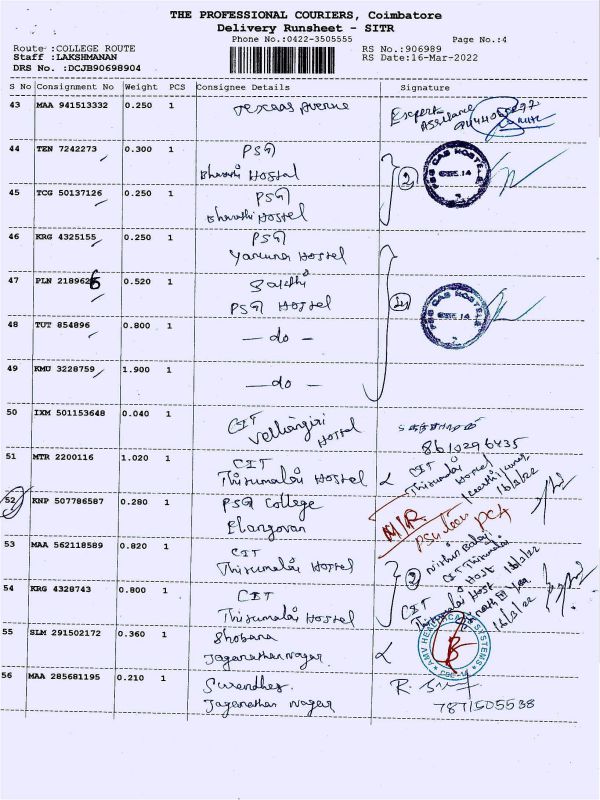 THE PROFESSIONAL COURIERS, Coimbatore
Delivery Runsheet - SITR
Phone No.:0422-3505555
Page No.:4
Route :COLLEGE ROUTE
RS No.:906989
Staff :LAKSHMANAN
RS Date:16-Mar-2022
DRS No. :DCJB90698904
S No Consignment No Weight PCS Consignee Details Signature
43 MAA 941513332 0.250 1 Avenue
Expert
Assistance
44 TEN 7242273 0.300 1 PSG
Bharathi Hostel
2
PSG CAS HOSTELS
CBE.14
45 TCG 50137126 0.250 1 PSG
Bharathi Hostel
46 KRG 4325155 0.250 1 PSG
Yamuna Hostel
47 PLN 2189626 0.520 1
PSG Hostel
PSG CAS HOSTELS
CBE.14
48 TUT 854896 0.800 1 — do —
49 KMU 3228759 1.900 1 — do —
50 IXM 501153648 0.040 1 CIT
Velliangiri
Hostel
8610296435
51 MTR 2200116 1.020 1 CIT
Thirumalai Hostel
CIT
Thirumalai
Hostel
16/3/22
52 KNP 507786587 0.280 1 PSG College
Elangovan
53 MAA 562118589 0.820 1 CIT
Thirumalai Hostel
2
CIT Thirumalai
Host 16/3/22
54 KRG 4328743 0.800 1 CIT
Thirumalai Hostel
CIT
Thirumalai Host
16/3/22
55 SLM 291502172 0.360 1 Shobana
Jaganathan Nagar
HEALTHCARE SYSTEMS
56 MAA 285681195 0.210 1 Surendher
Jaganathan Nagar
7871505538